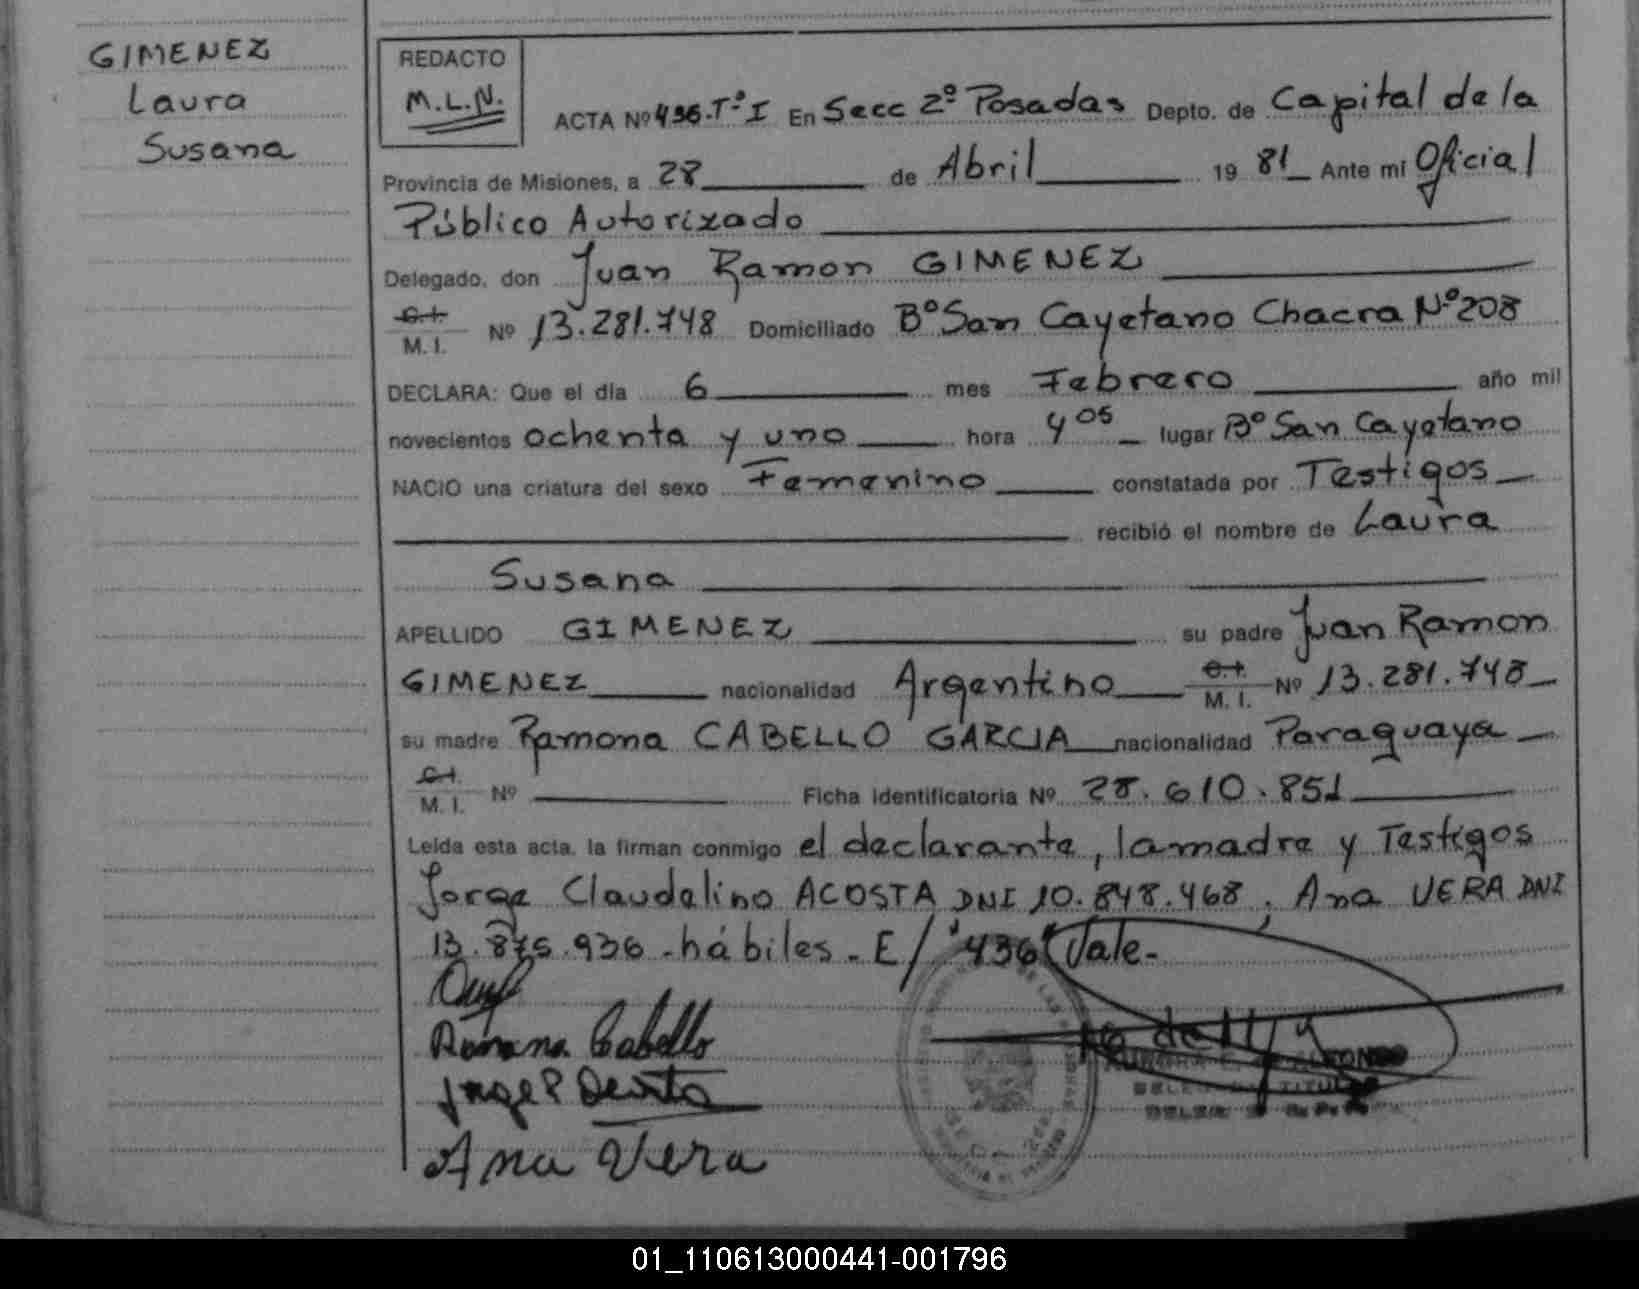 GIMENEZ
Laura
Susana
REDACTO
M.L.N.
ACTA Nº 436-Tº I En Secc 2º Posadas Depto. de Capital de la
Provincia de Misiones, a 28 de Abril 19 81 Ante mi Oficial
Público Autorizado
Delegado, don Juan Ramon GIMENEZ
C.I.
M. I. Nº 13.281.748 Domiciliado Bº San Cayetano Chacra Nº 208
DECLARA: Que el día 6 mes Febrero año mil
novecientos ochenta y uno hora 4 05 lugar Bº San Cayetano
NACIO una criatura del sexo Femenino constatada por Testigos
recibió el nombre de Laura
Susana
APELLIDO GIMENEZ su padre Juan Ramon
GIMENEZ nacionalidad Argentino C.I. M. I. Nº 13.281.748
su madre Ramona CABELLO GARCIA nacionalidad Paraguaya
C.I.
M. I. Nº Ficha identificatoria Nº 28.610.851
Leída esta acta, la firman conmigo el declarante, la madre y Testigos
Jorge Claudelino ACOSTA DNI 10.848.468, Ana VERA DNI
13.875.936 - hábiles. E/ "436" Vale.-
Ramona Cabello
Ana Vera
01_110613000441-001796